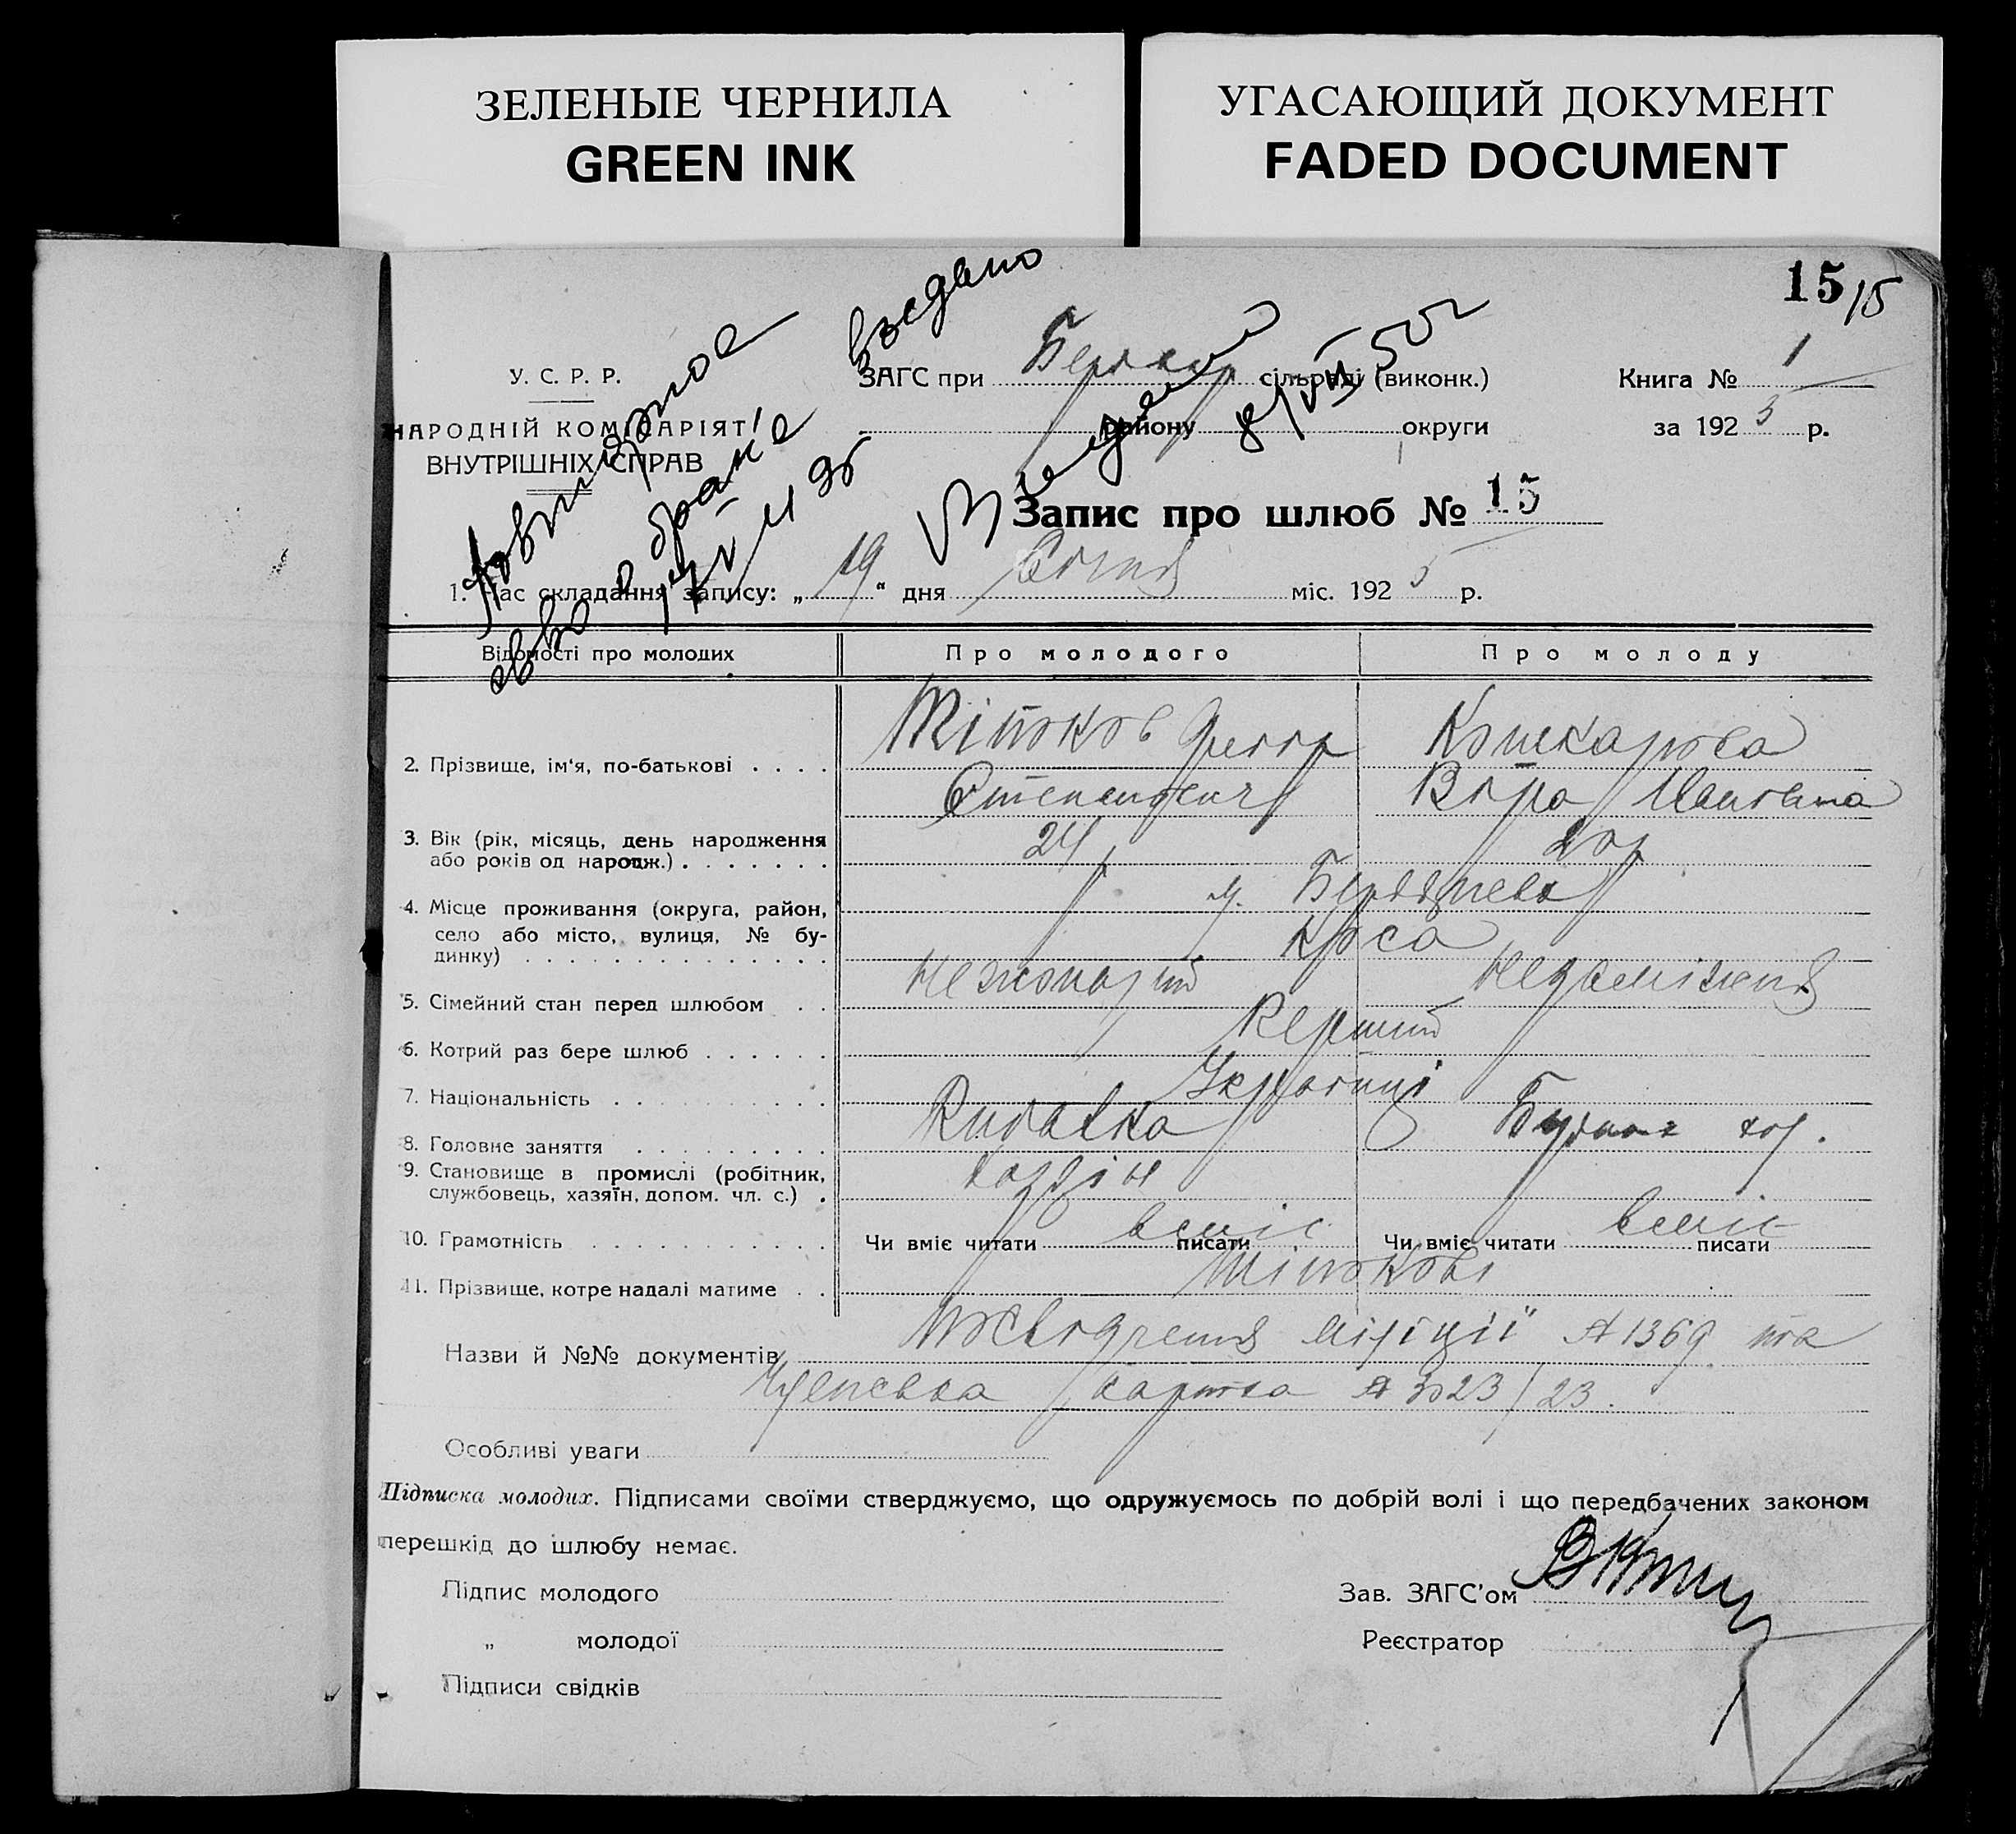 ЗЕЛЕНЫЕ ЧЕРНИЛА
GREEN INK
УГАСАЮЩИЙ ДОКУМЕНТ
FADED DOCUMENT
15 15
У. С. Р. Р.
НАРОДНІЙ КОМІСАРІЯТ
ВНУТРІШНІХ СПРАВ
Повторное
св во о браке
ЗАГС при сільраді (виконк.)
району округи
Книга № 1
за 1925 р.
Запис про шлюб № 15
1. Час складання запису: „19“ дня Січня міс. 1925 р.
Відомості про молодих
Про молодого
Про молоду
2. Прізвище, ім'я, по-батькові . . . .
Тітоков
Степанович
Кошкарьова
Віра Іванівна
3. Вік (рік, місяць, день народження
або років од народж.) . . . . . . .
24 р
20 р
4. Місце проживання (округа, район,
село або місто, вулиця, № бу-
динку) . . . . . . . . . . . . . .
м. Бердянськ
Коса
5. Сімейний стан перед шлюбом . .
Нежонатий
Незаміжня
6. Котрий раз бере шлюб . . . . . .
Перший
7. Національність . . . . . . . . . .
Українці
8. Головне заняття . . . . . . . . .
Рибалка
9. Становище в промислі (робітник,
службовець, хазяїн, допом. чл. с.) .
хазяїн
10. Грамотність . . . . . . . . . . .
Чи вміє читати вміє писати
Чи вміє читати вміє писати
11. Прізвище, котре надалі матиме . .
Тітокові
Назви й №№ документів Посвідчення міліції № 1369 та
картка № 3023/23.
Особливі уваги
Підписка молодих. Підписами своїми стверджуємо, що одружуємось по добрій волі і що передбачених законом
перешкід до шлюбу немає.
Підпис молодого
„ молодої
Підписи свідків
Зав. ЗАГС'ом
Реєстратор